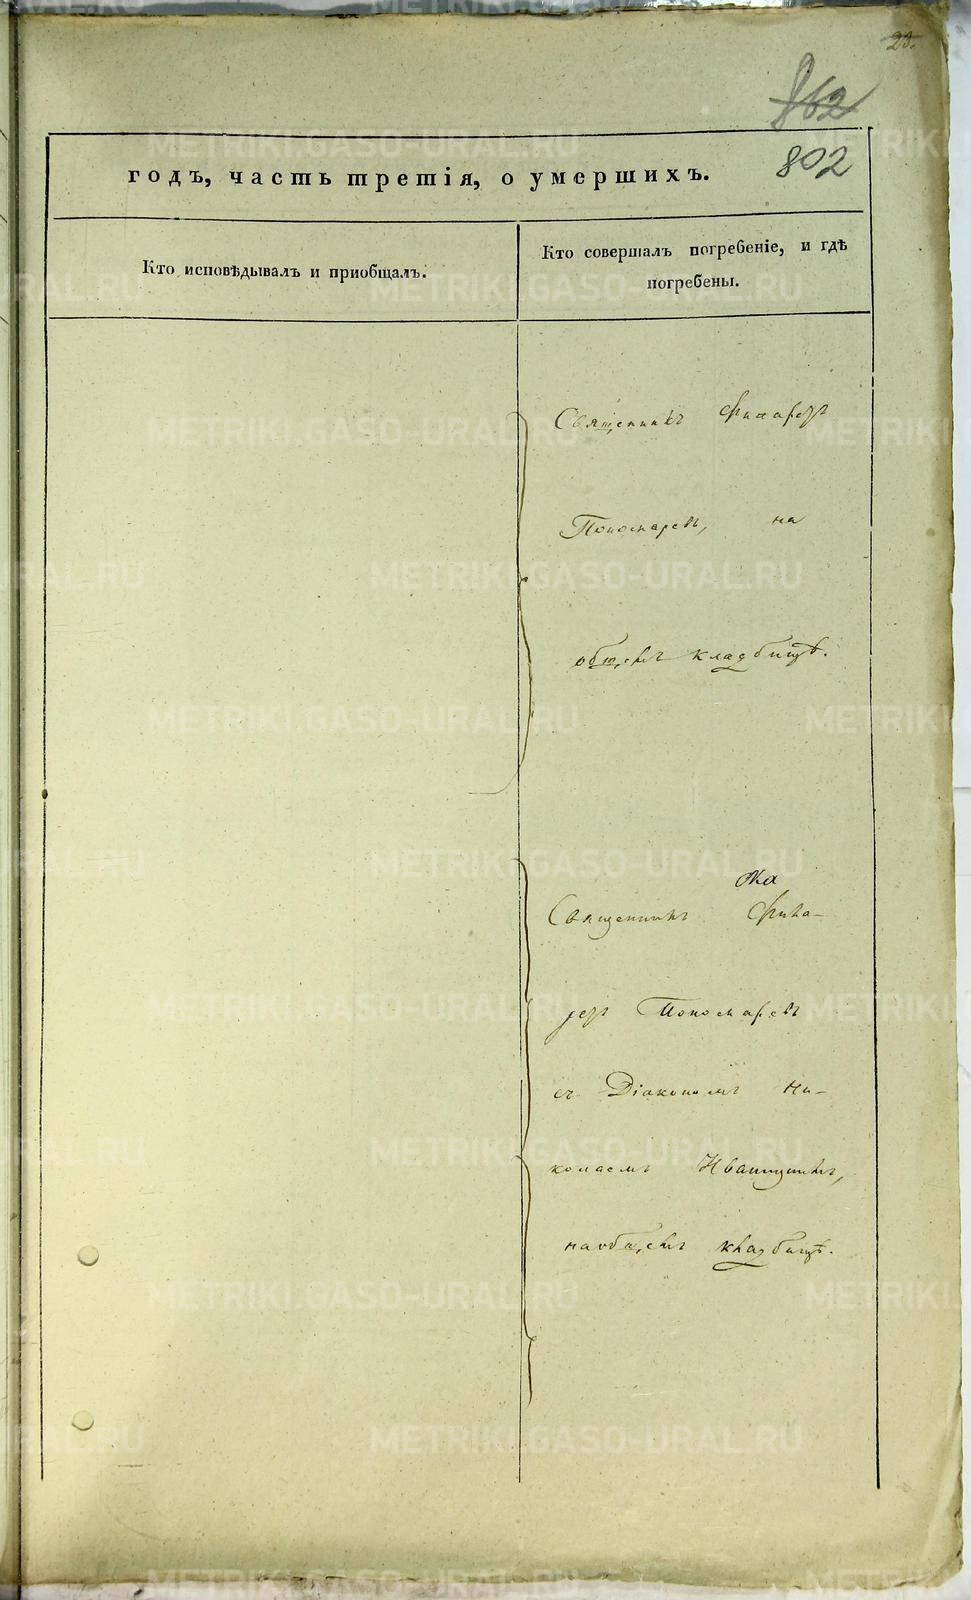 23.
862
802
годъ, часть третія, о умершихъ.
Кто исповѣдывалъ и приобщалъ.
Кто совершалъ погребеніе, и гдѣ
погребены.
Священникъ
Пономаревъ, на
общемъ кладбищѣ.
Священникъ
Пономаревъ
съ Діакономъ Ни-
колаемъ Ивашинымъ,
на общемъ кладбищѣ.
METRIKI.GASO-URAL.RU